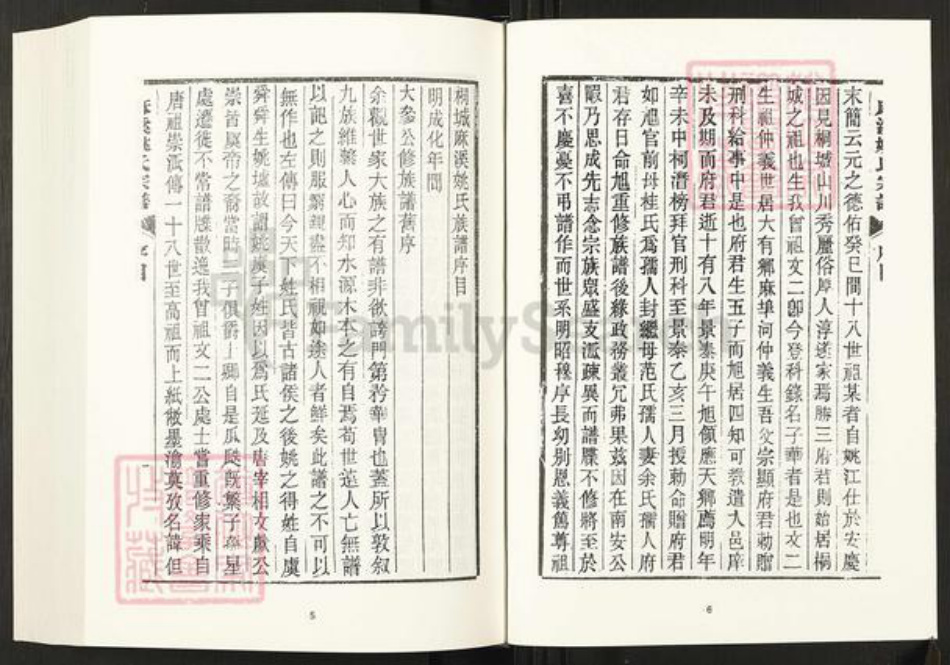 桐城麻溪姚氏族譜序目
明成化年間
大參公修族譜舊序
余觀世家大族之有譜非欲誇門第矜華胄也蓋所以敦敘
九族維繫人心而知水源木本之有自焉苟世遠人亡無譜
以記之則服窮親盡不相視如途人者鮮矣此譜之不可以
無作也左傳曰今天下姓氏皆古諸侯之後姚之得姓自虞
舜舜生姚墟故謂姚虞子姓因以為氏延及唐宰相文獻公
崇者虞帝之裔當時三子俱爵上卿自是瓜瓞既繁子孫星
處遷徙不常譜牒散逸我曾祖文二公處士嘗重修家乘自
唐祖崇派傳一十八世至高祖而上紙敝墨渝莫攷名諱但
5
末簡云元之德佑癸巳間十八世祖某者自姚江仕於安慶
因見桐城山川秀麗俗厚人淳遂家焉勝三府君則始居桐
城之祖也生我曾祖文二卽今登科錄名子華者是也文二
生祖仲義世居大有鄉麻埠河仲義生吾父宗顯府君勅贈
刑科給事中是也府君生五子而旭居四知可教遣入邑庠
未及期而府君逝十有八年景泰庚午旭領應天鄉薦明年
辛未中柯潛榜拜官刑科至景泰乙亥三月授勅命贈府君
如旭官前母桂氏為孺人封繼母范氏孺人妻余氏孺人府
君存日命旭重修族譜後緣政務叢冗弗果茲因在南安公
暇乃思成先志念宗族眾盛支派疎異而譜牒不修將至於
喜不慶憂不弔譜作而世系明昭穆序長幼別恩義篤尊祖
6
FamilySearch